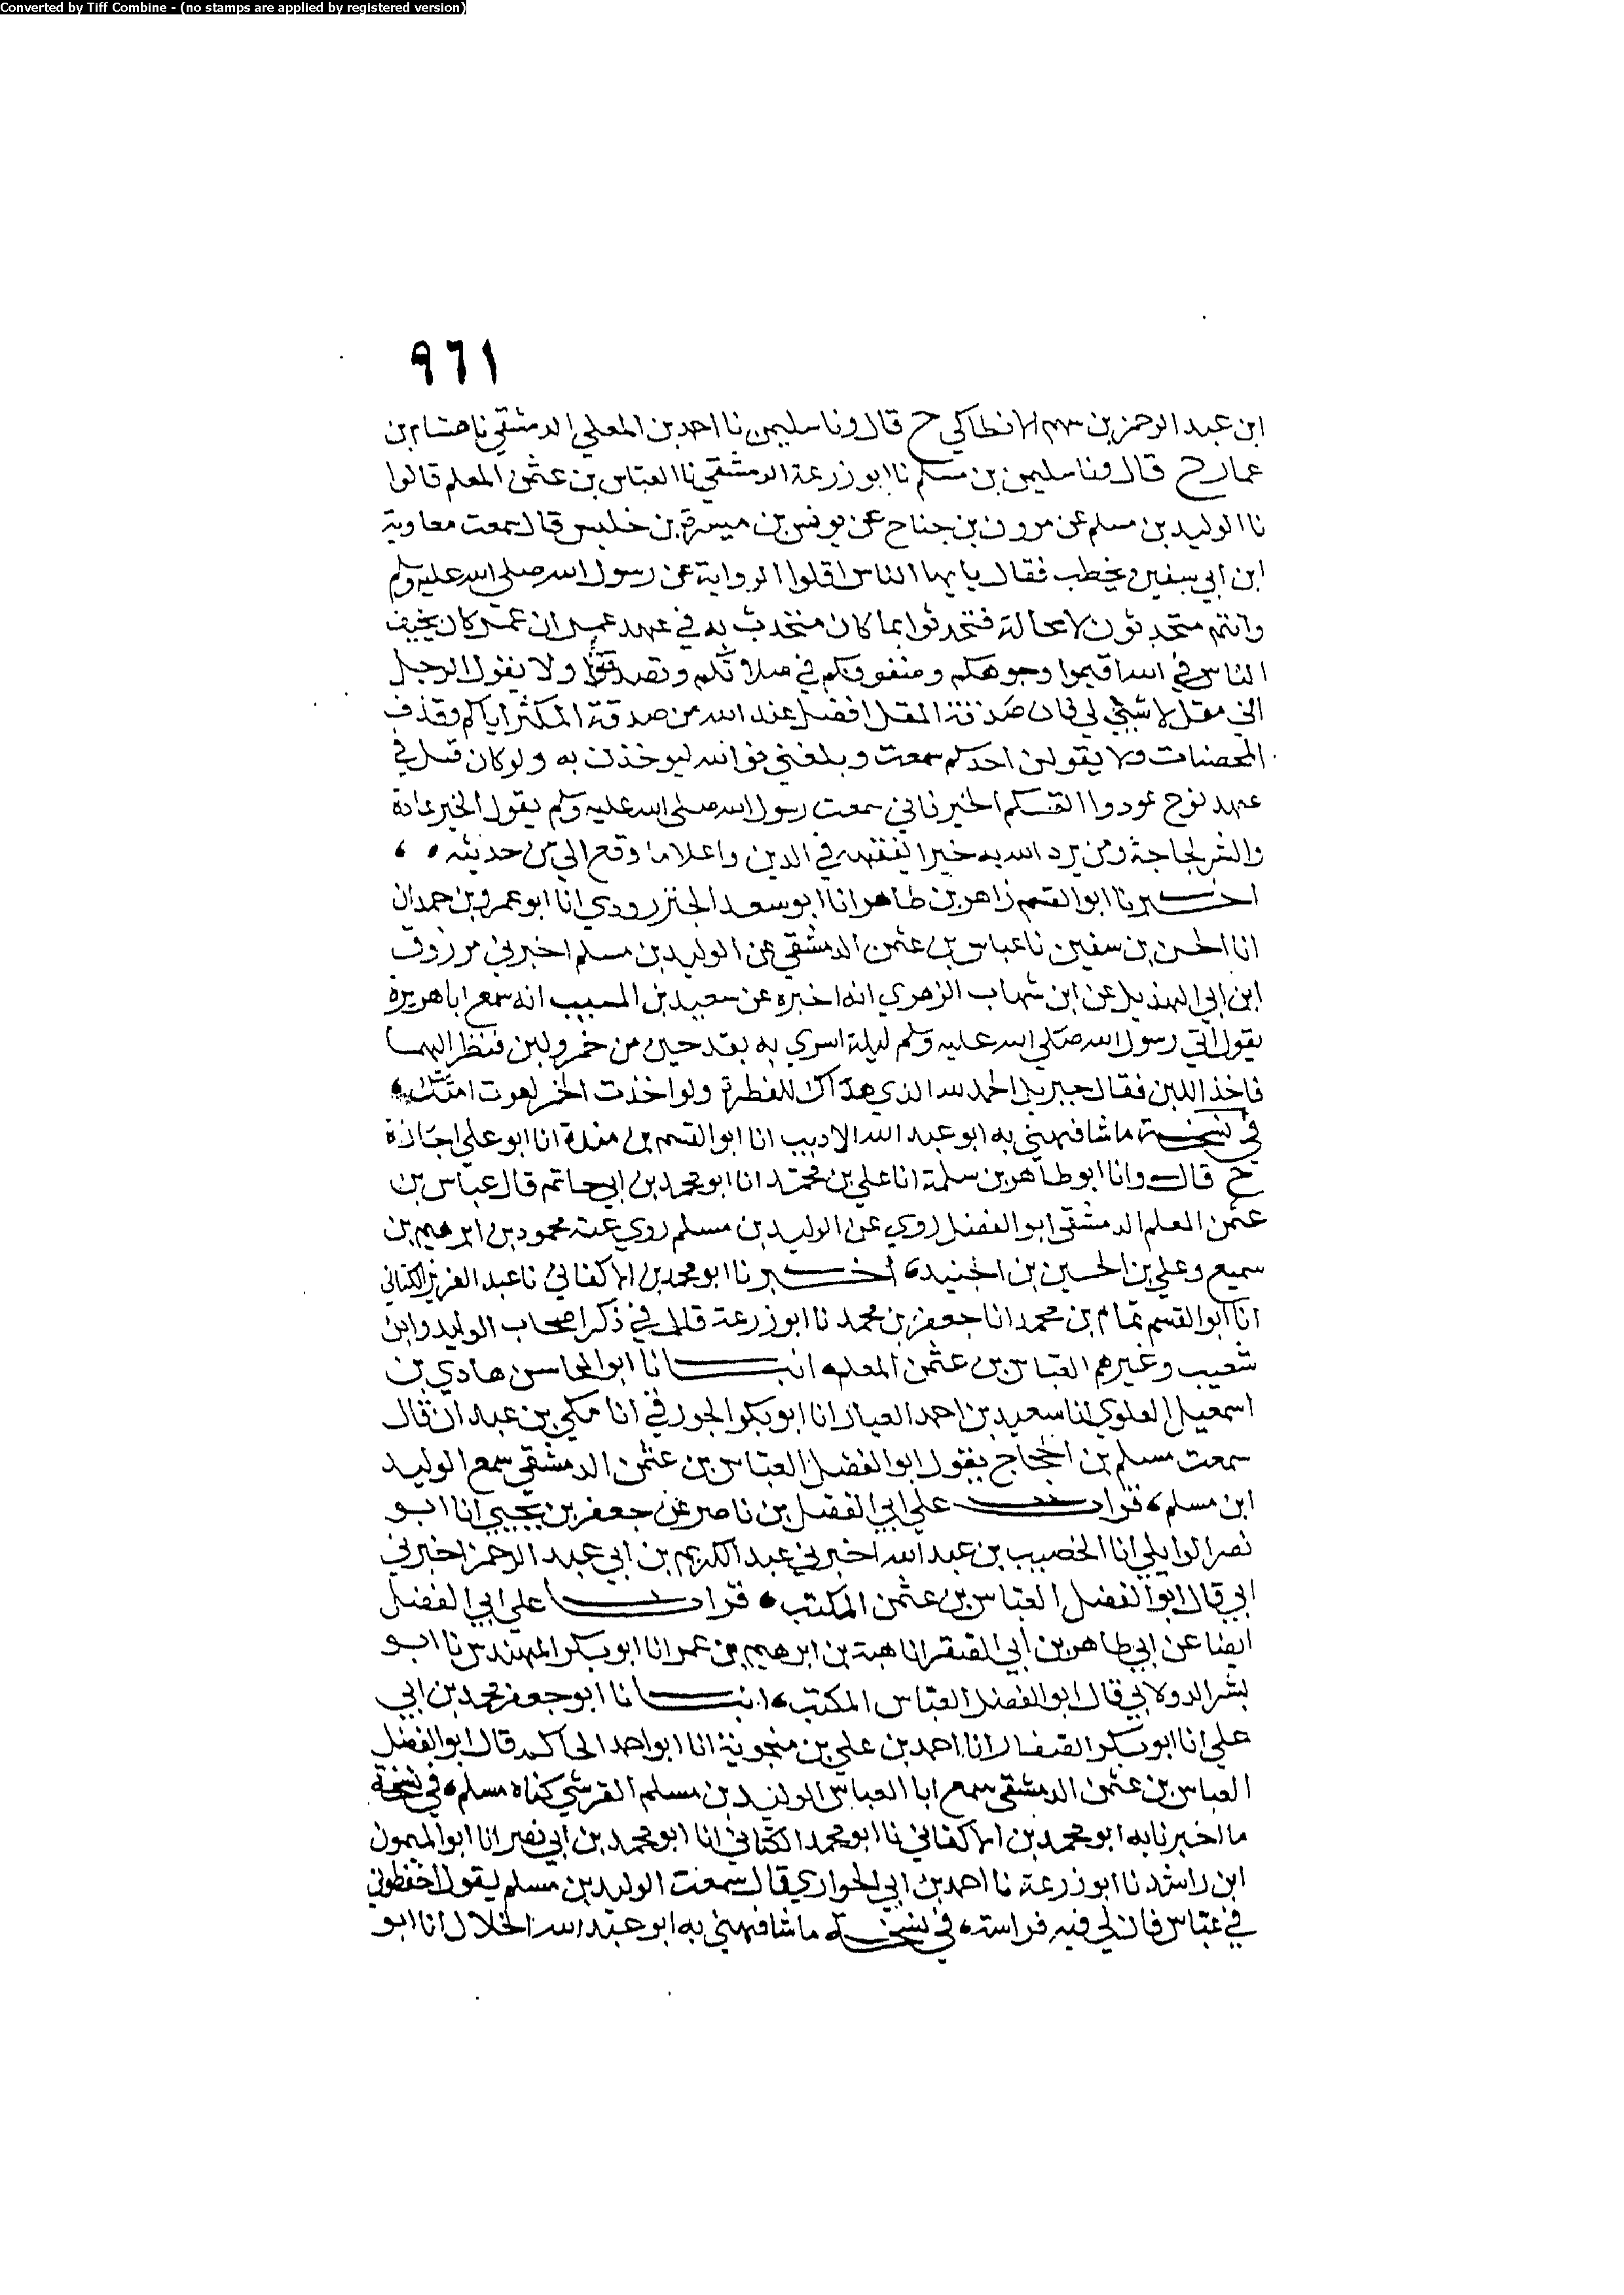 Converted by Tiff Combine - (no stamps are applied by registered version)
٩٦١
ابن عبد الرحمن بن سهم الانطاكي ح قال ونا سليمن نا احمد بن المعلي الدمشقي نا هشام بن
عمار ح قال ونا سليمن بن مسلم نا ابو زرعة الدمشقي نا العباس بن عثمن المعلم قالوا
نا الوليد بن مسلم عن مرون بن جناح عن يونس بن ميسرة بن حلبس قال سمعت معاوية
ابن ابي سفين يخطب فقال يا يها الناس اقلوا الرواية عن رسول الله صلي الله عليه وسلم
وانتم متحدثون لا محالة فتحدثوا بما كان متحدث به في عهد عمر ان عمر كان يخيف
الناس في الله اقيموا وجوهكم وصفوفكم في صلاتكم وتصدقوا ولا يقول الرجل
اني مقل لا شئي لي فان صدقة المقل افضل عند الله من صدقة المكثر اياكم وقذف
المحصنات ولا يقولن احدكم سمعت وبلغني فوالله ليوخذن به ولو كان قيل في
عهد نوح عودوا انفسكم الخير فاني سمعت رسول الله صلي الله عليه وسلم يقول الخير عادة
والشر لجاجة ومن يرد الله به خيرا يفقهه في الدين واعلا ما وقع الي من حديثه
اخبرنا ابو القسم زاهر بن طاهر انا ابو سعد الجنزرودي انا ابو عمرو بن حمدان
انا الحسن بن سفين نا عباس بن عثمن الدمشقي عن الوليد بن مسلم اخبرني مرزوق
ابن ابي الهذيل عن ابن شهاب الزهري انه اخبره عن سعيد بن المسيب انه سمع ابا هريرة
يقول اتي رسول الله صلي الله عليه وسلم ليلة اسري به بقدحين من خمر ولبن فنظر اليهما
فاخذ اللبن فقال جبريل الحمد لله الذي هداك للفطرة ولو اخذت الخمر لغوت امتك
في نسخة ما شافهني به ابو عبد الله الاديب انا ابو القسم بن مندة انا ابو علي اجازة
ح قال وانا ابو طاهر بن سلمة انا علي بن محمد انا ابو محمد بن ابي حاتم قال عباس بن
عثمن المعلم الدمشقي ابو الفضل روي عن الوليد بن مسلم روي عنه محمود بن ابرهيم بن
سميع وعلي بن الحسين بن الجنيد اخبرنا ابو محمد بن الاكفاني نا عبد العزيز الكتاني
انا ابو القسم تمام بن محمد انا جعفر بن محمد نا ابو زرعة قال في ذكر اصحاب الوليد وابن
شعيب وغيرهم العباس بن عثمن المعلم انبانا ابو المحاسن هادي بن
اسمعيل العلوي انا سعيد بن احمد العيار انا ابو بكر الجوزقي انا مكي بن عبدان قال
سمعت مسلم بن الحجاج يقول ابو الفضل العباس بن عثمن الدمشقي سمع الوليد
ابن مسلم قرات علي ابي الفضل بن ناصر عن جعفر بن يحيي انا ابو
نصر الوايلي انا الخصيب بن عبد الله اخبرني عبد الكريم بن ابي عبد الرحمن اخبرني
ابي قال ابو الفضل العباس بن عثمن المكتب قرات علي ابي الفضل
ايضا عن ابي طاهر بن ابي الصقر انا هبة بن ابرهيم بن عمر انا ابو بكر المهندس نا ابو
بشر الدولابي قال ابو الفضل العباس المكتب انبانا ابو جعفر محمد بن ابي
علي انا ابو بكر الصفار انا احمد بن علي بن منجوية انا ابو احمد الحاكم قال ابو الفضل
العباس بن عثمن الدمشقي سمع ابا العباس الوليد بن مسلم القرشي كناه مسلم في نسخة
ما اخبرنا به ابو محمد بن الاكفاني نا ابو محمد الكتاني انا ابو محمد بن ابي نصر انا ابو الميمون
ابن راشد نا ابو زرعة نا احمد بن ابي الحواري قال سمعت الوليد بن مسلم يقول احفظوني
في عباس فان لي فيه فراسته في نسخة ما شافهني به ابو عبد الله الخلال انا ابو